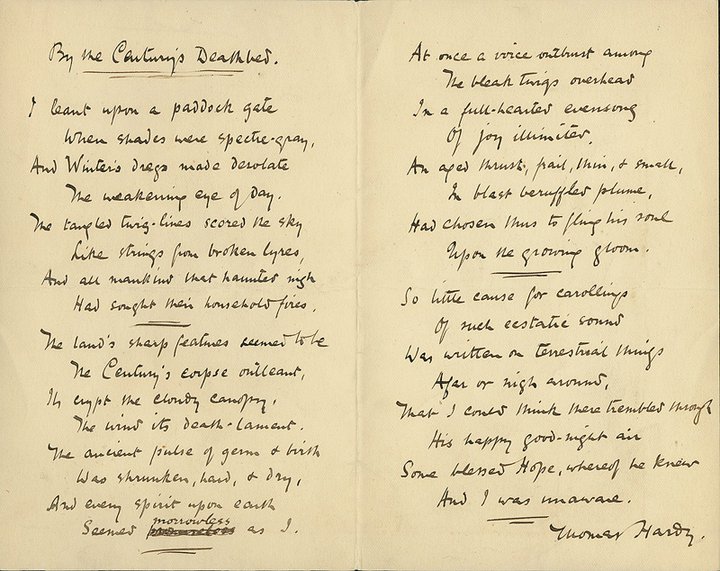 By the Century's Deathbed.
I leant upon a paddock gate
When shades were spectre-gray,
And Winter's dregs made desolate
The weakening eye of Day.
The tangled twig-lines scored the sky
Like strings from broken lyres,
And all mankind that haunted nigh
Had sought their household fires.
The land's sharp features seemed to be
The Century's corpse outleant,
Its crypt the cloudy canopy,
The wind its death-lament.
The ancient pulse of germ & birth
Was shrunken, hard, & dry,
And every spirit upon earth
Seemed morrowless as I.
At once a voice outburst among
The bleak twigs overhead
In a full-hearted evensong
Of joy illimited.
An aged thrush, frail, thin, & small,
In blast-beruffled plume,
Had chosen thus to fling his soul
Upon the growing gloom.
So little cause for carollings
Of such ecstatic sound
Was written on terrestrial things
Afar or nigh around,
That I could think there trembled through
His happy good-night air
Some blessed Hope, whereof he knew
And I was unaware.
Thomas Hardy.